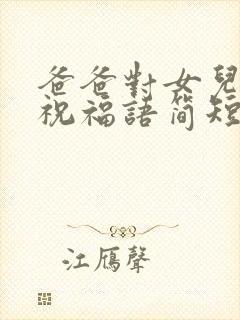 爸爸對女兒
祝福語简短
江雁聲